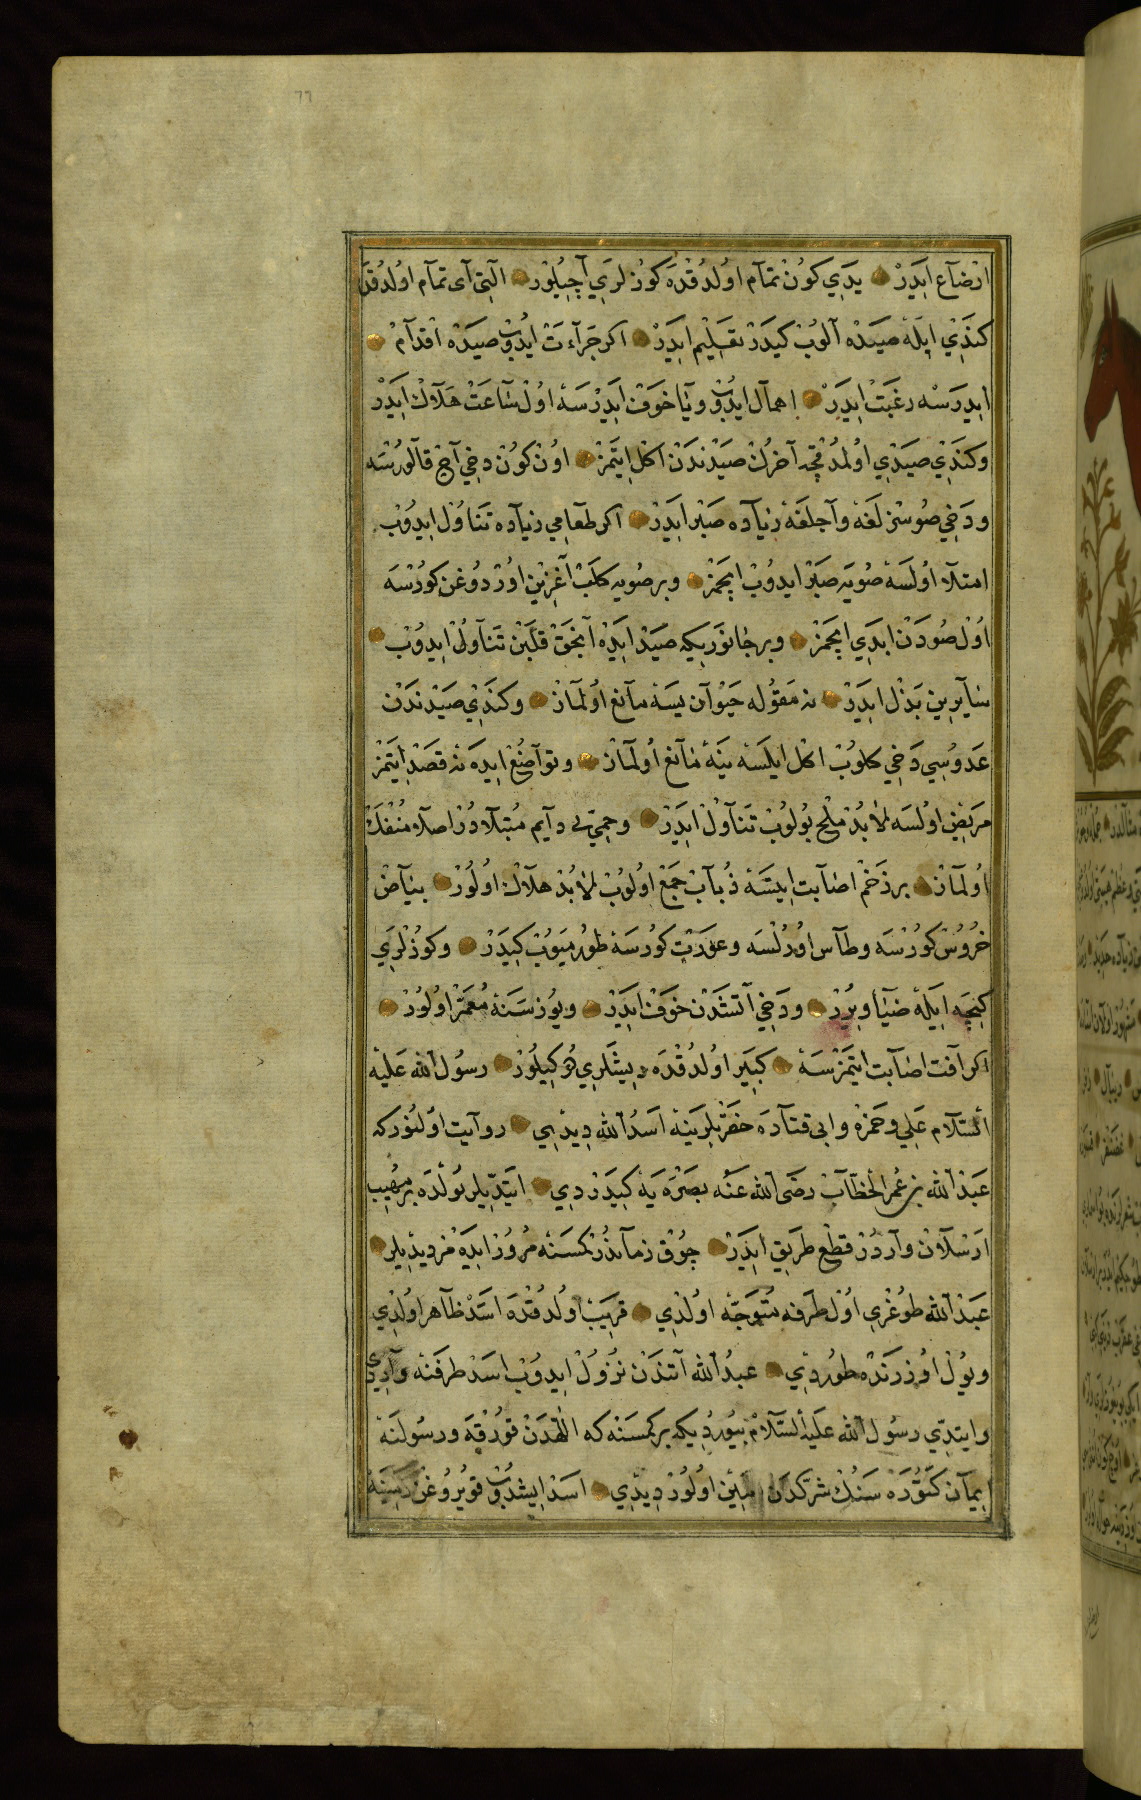 ارضآع ايدر يدى كون تمآم اولدقده كوزلرى آچيلور التى آى تمآم اولدقده
كندى ايله صيده آلوب كيدر تعليم ايدر اكر جرآءت ايدوب صيده اقدآم
ايدرسه رغبت ايدر اهمآل ايدوب ويا خوف ايدرسه اول ساعت هلآك ايدر
وكندى صيدى اولمدقچه آخرك صيدندن اكل ايتمز اون كون دخى آچ قالورسه
ودخى صوسزلغه وآجلغه زيآده صبر ايدر اكر طعامى زيآده تناول ايدوب
امتلآ اولسه صويه صبر ايدوب ايچمز وبر صويه كلب آغزين اوردوغن كورسه
اول صودن ابدى ايچمز وبر جانور يكه صيد ايده آنجق قلبن تنآول ايدوب
سايرين بذل ايدر نه مقوله حيوآن يسه مآنع اولمآز وكندى صيدندن
عدوسى دخى كلوب اكل ايلسه ينه مآنع اولمآز وتوآضع ايدنه قصد ايتمز
مريض اولسه لابد ملح بولوب تنآول ايدر وحمى يه دآيم مبتلآدر اصلآ منفك
اولمآز بر زخم اصابت ايتسه ذبآب جمع اولوب لابد هلآك اولور بيآض
خروس كورسه وطآس اورلسه وعورت كورسه طورميوب كيدر وكوزلرى
كيجه ايله ضيا ويرر ودخى آتشدن خوف ايدر ويوز سنه معمر اولور
اكر آفت اصابت ايتمزسه كبير اولدقده ديشلرى دوكيلور رسول الله عليه
السلآم على وحمزه وابى قتآده حضرتلرينه اسد الله ديدى روآيت اولنور كه
عبد الله بن عمر الخطآب رضى الله عنه بصره يه كيدردى ايتديلر يولده بر مهيب
ارسلآن وآردر قطع طريق ايدر چوق زمآندر كمسنه مرور ايده مز ديديلر
عبد الله طوغرى اول طرفه متوجه اولدى قريب اولدقده اسد ظآهر اولدى
ويول اوزرنده طوردى عبد الله آتندن نزول ايدوب اسد طرفنه وآردى
وايتدى رسول الله عليه السلآم بيورديكه بر كمسنه كه اللهدن قورقه ورسولنه
ايمآن كتوره سنك شركدن امين اولور ديدى اسد ايشدوب قويروغن